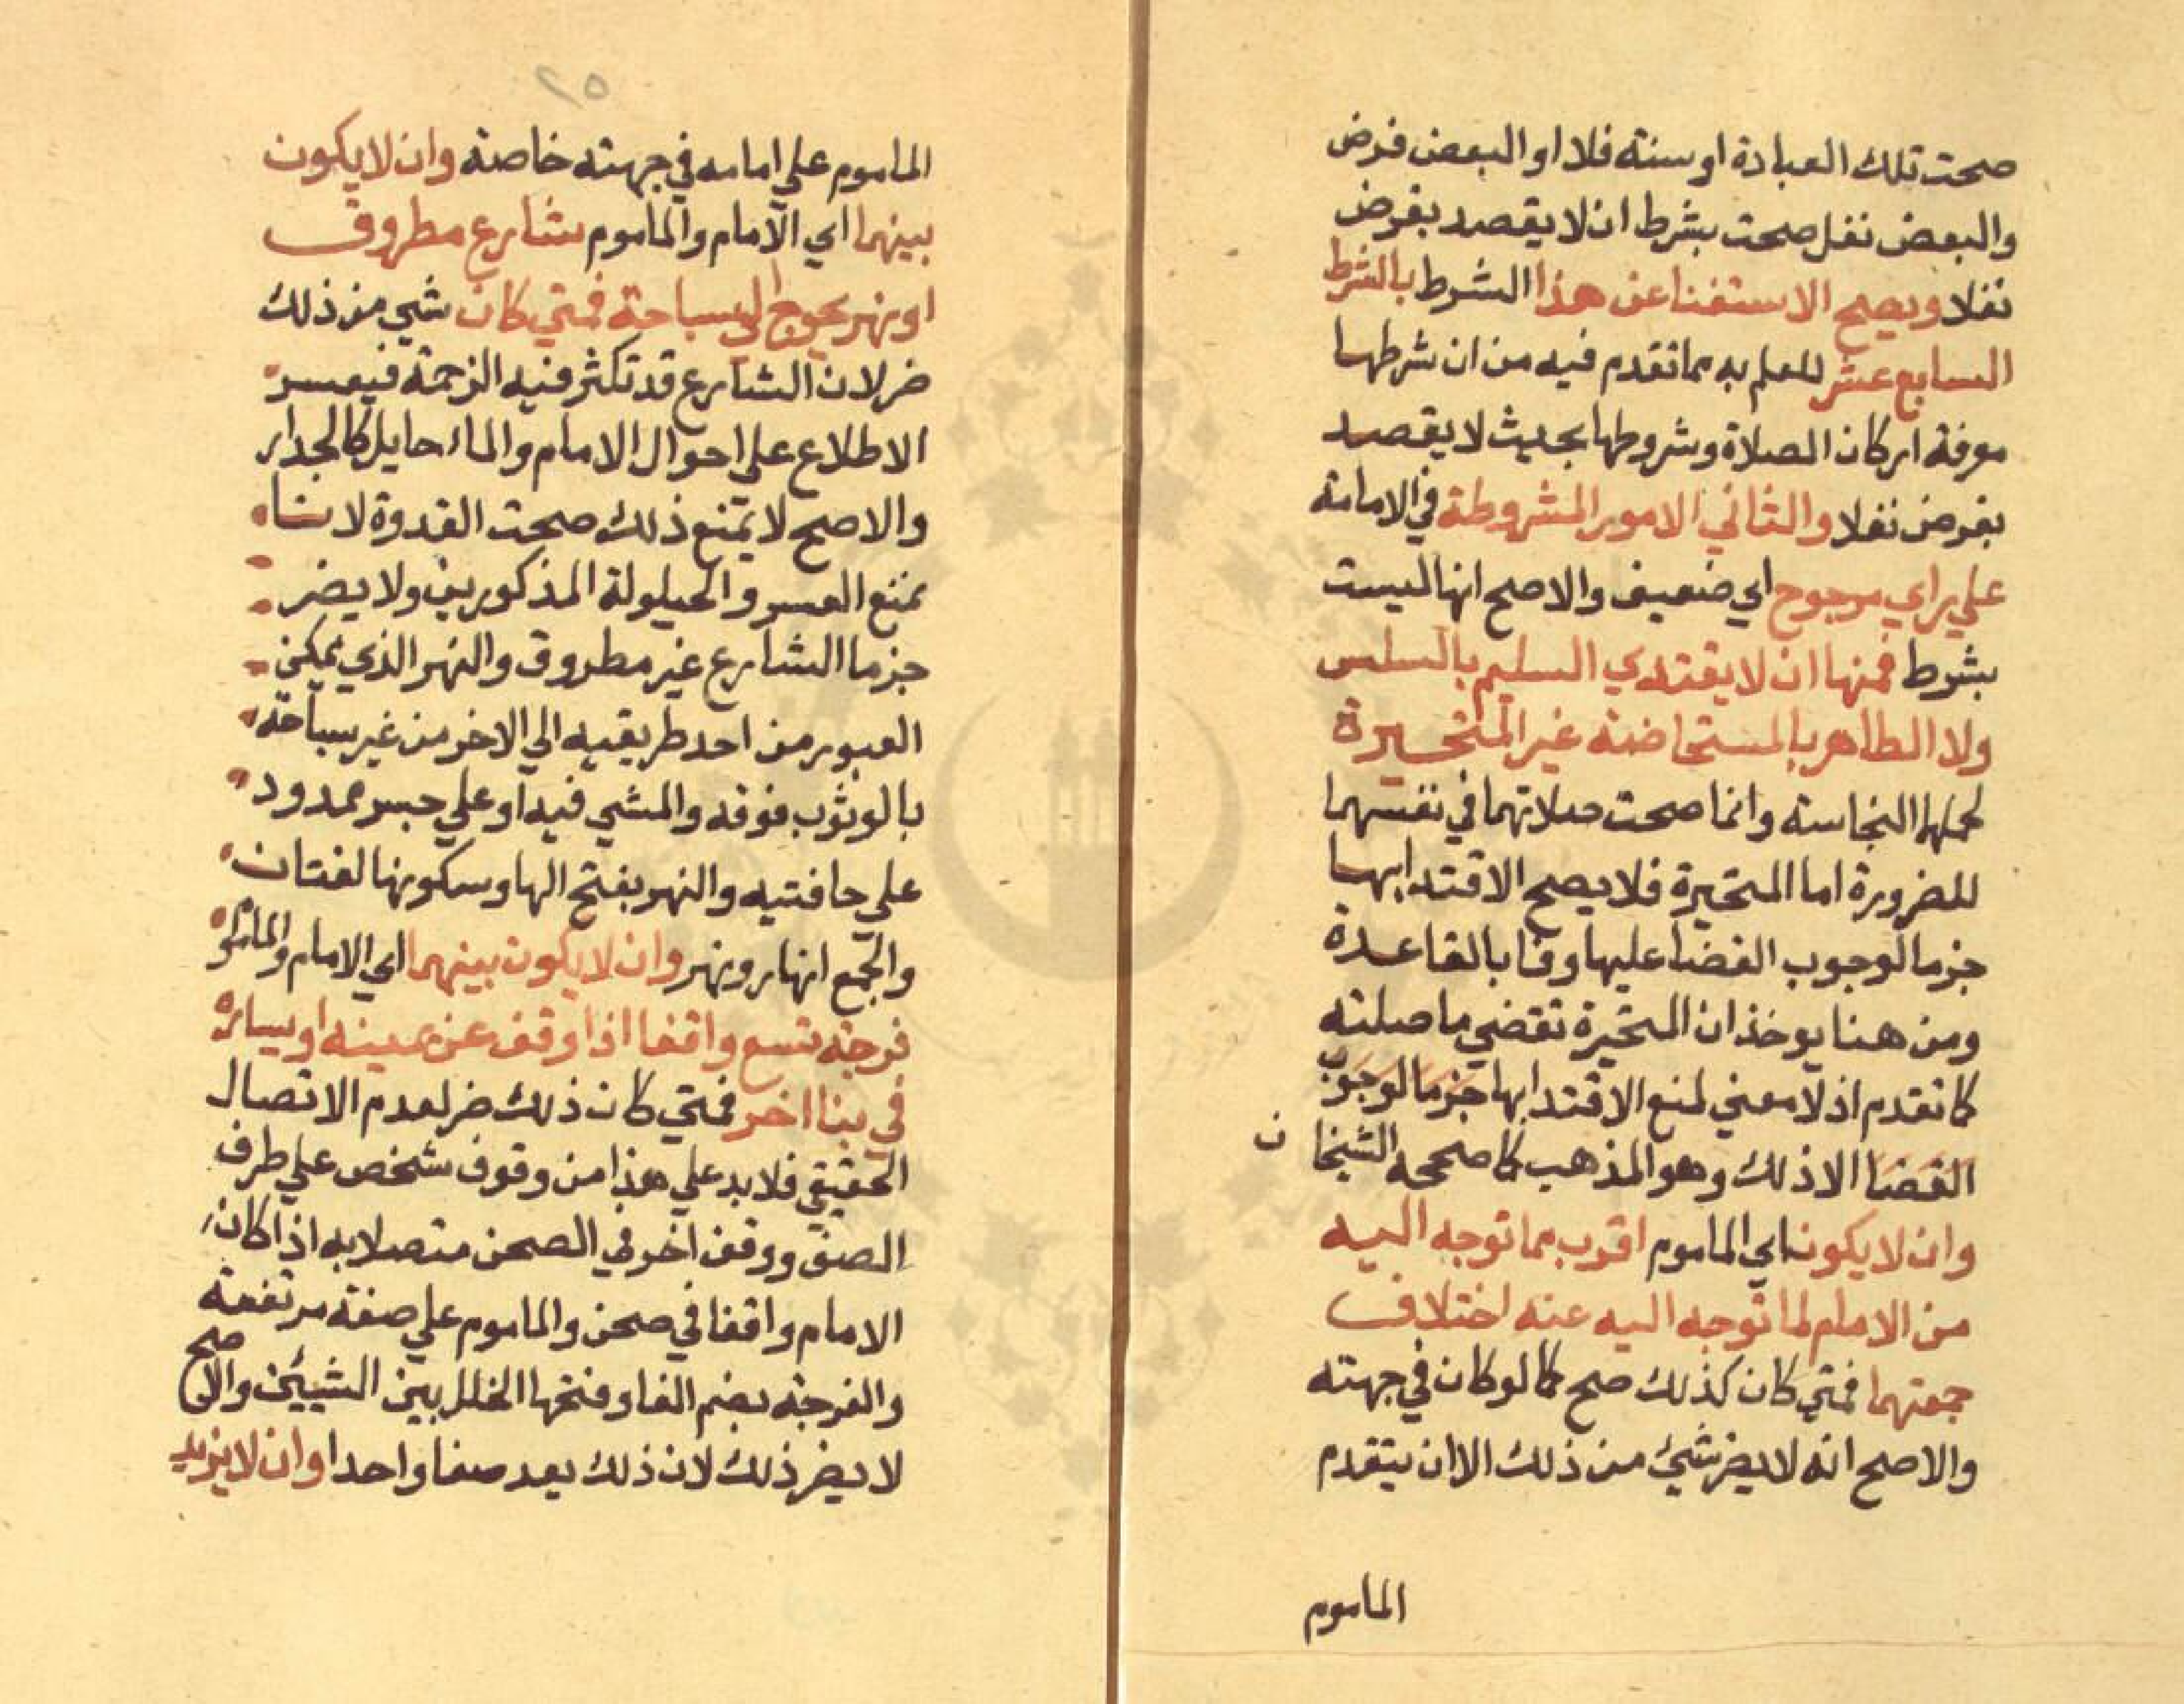 صحت تلك العبادة او سنة فلا او البعض فرض
والبعض نفل صحت بشرط ان لا يقصد بفرض
نفلا ويصح الاستغنا عن هذا الشرط بالشرط
السابع عشر للعلم به مما تقدم فيه من ان شرطها
معرفة اركان الصلاة وشروطها بحيث لا يقصد
بفرض نفلا والثاني الامور المشروطة في الامامة
علي راي مرجوح اي ضعيف والاصح انها ليست
بشرط فمنها ان لا يقتدي السليم بالسلس
ولا الطاهر بالمستحاضة غير المتحيرة
لحملها النجاسة وانما صحت صلاتهما في نفسهما
للضرورة اما المتحيرة فلا يصح الاقتدا بها
جزما لوجوب القضا عليها وفا بالقاعدة
ومن هنا يوخذ ان المتحيرة تقضي ما صلته
كما تقدم اذ لا معني لمنع الاقتدا بها جزما لوجوب
القضا الا ذلك وهو المذهب كما صححه الشيخان
وان لا يكون اي الماموم اقرب مما توجه اليه
من الامام لما توجه اليه عند اختلاف
جهتهما فمتي كان كذلك صح كما لو كان في جهته
والاصح انه لا يضر شيء من ذلك الا ان يتقدم
الماموم
٢٥
الماموم علي امامه في جهته خاصة وان لا يكون
بينهما اي الامام والماموم شارع مطروق
او نهر يحوج الي سباحة فمتي كان شي من ذلك
ضر لان الشارع قد تكثر فيه الزحمة فيعسر
الاطلاع علي احوال الامام والماء حايل كالجدار
والاصح لا يمنع ذلك صحت القدوة لا سا
بمنع العسر والحيلولة المذكورين ولا يضر
جزما الشارع غير مطروق والنهر الذي يمكن
العبور من احد طريقيه الي الاخر من غير سباحة
بالوثوب فوقه والمشي فيه او علي جسر ممدود
علي حافتيه والنهر بفتح الها وسكونها لغتان
والجمع انهار ونهر وان لا يكون بينهما اي الامام والمامو
فرجة تسع واقفا اذا وقف عن يمينه او يساره
في بنا اخر فمتي كان ذلك ضر لعدم الاتصال
الحقيقي فلا بد علي هذا من وقوف شخص علي طرف
الصف ووقف اخر في الصحن متصلا به اذا كان
الامام واقفا في صحن والماموم علي صفة مرتفعة
والفرجة بضم الفا وفتحها الخلل بين الشيئين والاصح
لا يضر ذلك لان ذلك يعد صفا واحدا وان لا يزيد